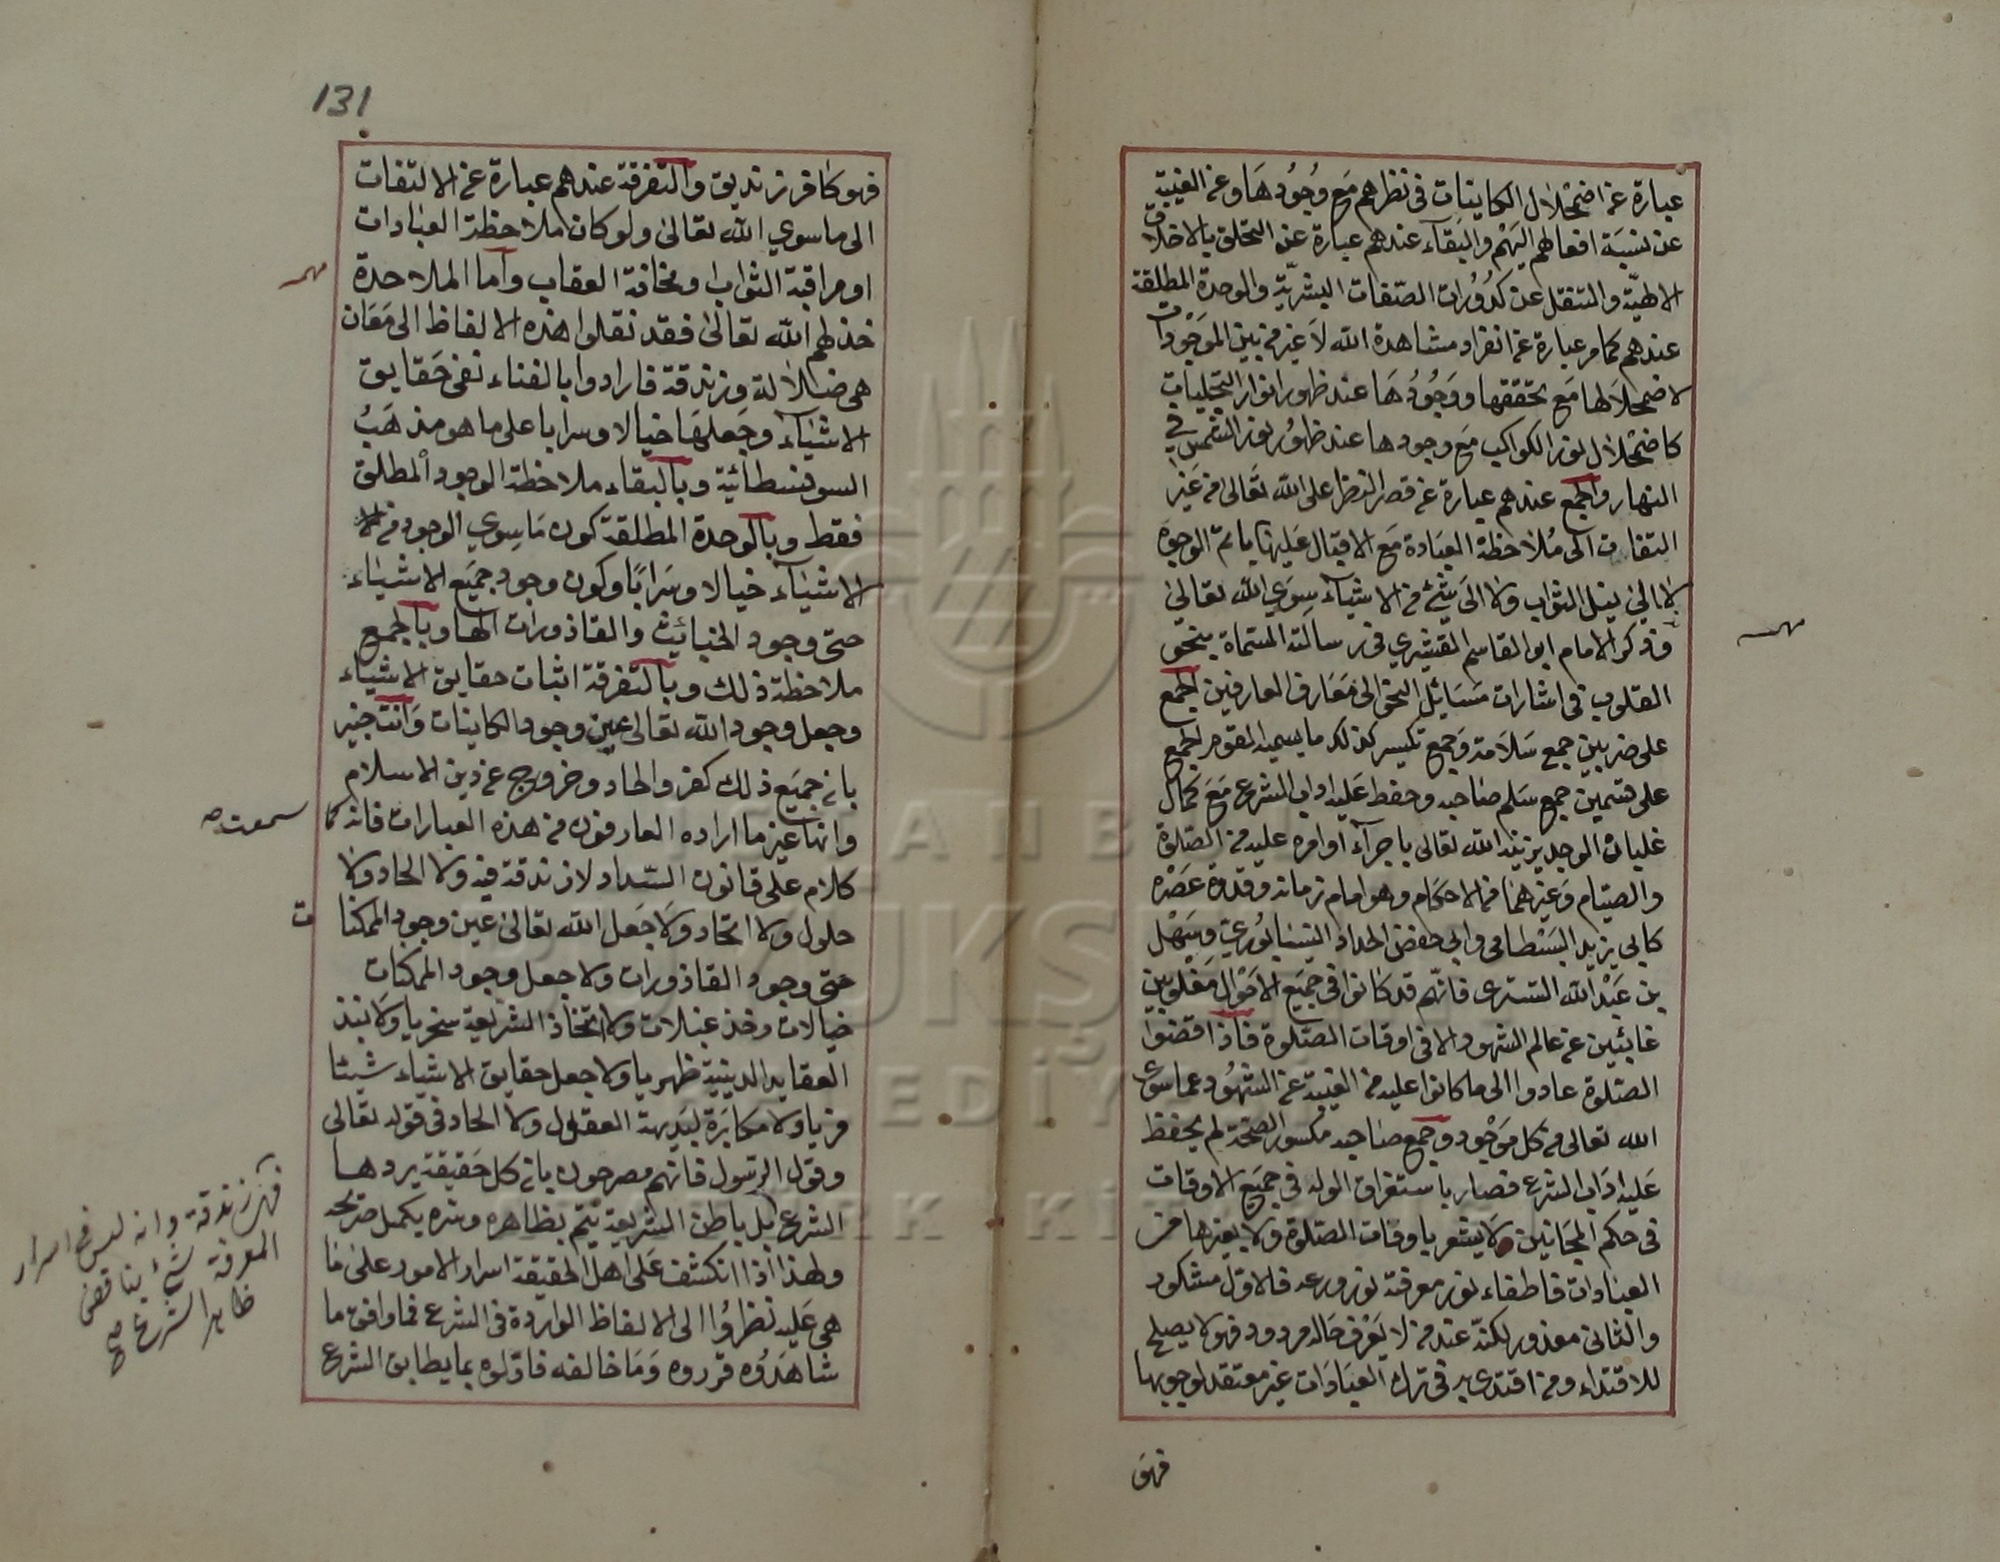 عبارة عن اضمحلال الكاينات فى نظرهم مع وجودها وعن الغيبة
عن نسبة افعالهم اليهم والبقاء عندهم عبارة عن التخلق بالاخلاق
الالهية والتنقل عن كدورات الصفات البشرية والوحدة المطلقة
عندهم كما مر عبارة عن انفراد مشاهدة الله لا غير من بين الموجودات
لاضمحلالها مع تحققها ووجودها عند ظهور انوار التجليات
كاضمحلال نور الكواكب مع وجودها عند ظهور نور الشمس في
النهار والجمع عندهم عبارة عن قصر النظر على الله تعالى من غير
التفات الى ملاحظة العبادة مع الاقبال عليها باتم الوجوه
لا الى نيل الثواب ولا الى شئ من الاشياء سوي الله تعالى
وذكر الامام ابو القاسم القشيري فى رسالته المسماة بنحو
القلوب فى اشارات مسائل النحو الى معارف العارفين الجمع
على ضربين جمع سلامة وجمع تكسير كذلك ما يسميه القوم الجمع
على قسمين جمع سلم صاحبه وحفظ عليه اداب الشرع مع كمال
غلبات الوجد يزينه الله تعالى باجراء اوامره عليه من الصلوة
والصيام وغيرهما من الاحكام وهو امام زمانه وقدوة عصره
كابى يزيد البسطامى وابى حفص الحداد النيسابوري وسهل
بن عبد الله التسترى فانهم قد كانوا فى جميع الاحوال مغلوبين
غائبين عن عالم الشهود الا فى اوقات الصلوة فاذا قضوا
الصلوة عادوا الى ما كانوا عليه من الغيبة عن الشهود عما سوى
الله تعالى من كل موجود وجمع صاحبه مكسور الصحة لم يحفظ
عليه اداب الشرع فصار باستغراق الوله فى جميع الاوقات
فى حكم المجانين ولا يشعر باوقات الصلوة ولا بغيرها من
العبادات فاطفاء نور معرفته نور ورعه فالاول مشكور
والثانى معذور لكنه عند من لا يعرف حاله مردود فهو لا يصلح
للاقتداء ومن اقتدى به فى ترك العبادات غير معتقد لوجوبها
فهو
131
فهو كافر زنديق والتفرقة عندهم عبارة عن الالتفات
الى ما سوي الله تعالى ولو كان ملاحظة العبادات
او مراقبة الثواب ومخافة العقاب واما الملاحدة
خذلهم الله تعالى فقد نقلوا هذه الالفاظ الى معان
هى ضلالة وزندقة فارادوا بالفناء نفى حقايق
الاشياء وجعلها خيالا وسرابا على ما هو مذهب
السوفسطائية وبالبقاء ملاحظة الوجود المطلق
فقط وبالوحدة المطلقة كون ما سوي الوجود من
الاشياء خيالا وسرابا وكون وجود جميع الاشياء
حتى وجود الخبائث والقاذورات الها وبالجمع
ملاحظة ذلك وبالتفرقة اثبات حقايق الاشياء
وجعل وجود الله تعالى عين وجود الكاينات وانت خبير
بان جميع ذلك كفر والحاد وخروج عن دين الاسلام
وانها غير ما اراده العارفون من هذه العبارات فانه كما سمعت
كلام على قانون السداد لا زندقة فيه ولا الحاد ولا
حلول ولا اتحاد ولا جعل الله تعالى عين وجود الممكنات
حتى وجود القاذورات ولا جعل وجود الممكنات
خيالات وخزعبلات ولا اتخاذ الشريعة سخريا ولا نبذ
العقايد الدينية ظهريا ولا جعل حقايق الاشياء شيئا
فريا ولا مكابرة لبديهة العقول ولا الحاد فى قوله تعالى
وقول الرسول فانهم مصرحون بان كل حقيقة يردها
الشرع فهى زندقة وانه ليس فى اسرار
المعرفة شئ يناقض
ظاهر الشرع صح
بل باطن الشريعة يتم بظاهره وسره يكمل صريحه
ولهذا اذا انكشف على اهل الحقيقة اسرار الامور على ما
هى عليه نظروا الى الالفاظ الواردة فى الشرع فما وافق ما
شاهدوه قرروه وما خالفه فاولوه بما يطابق الشرع